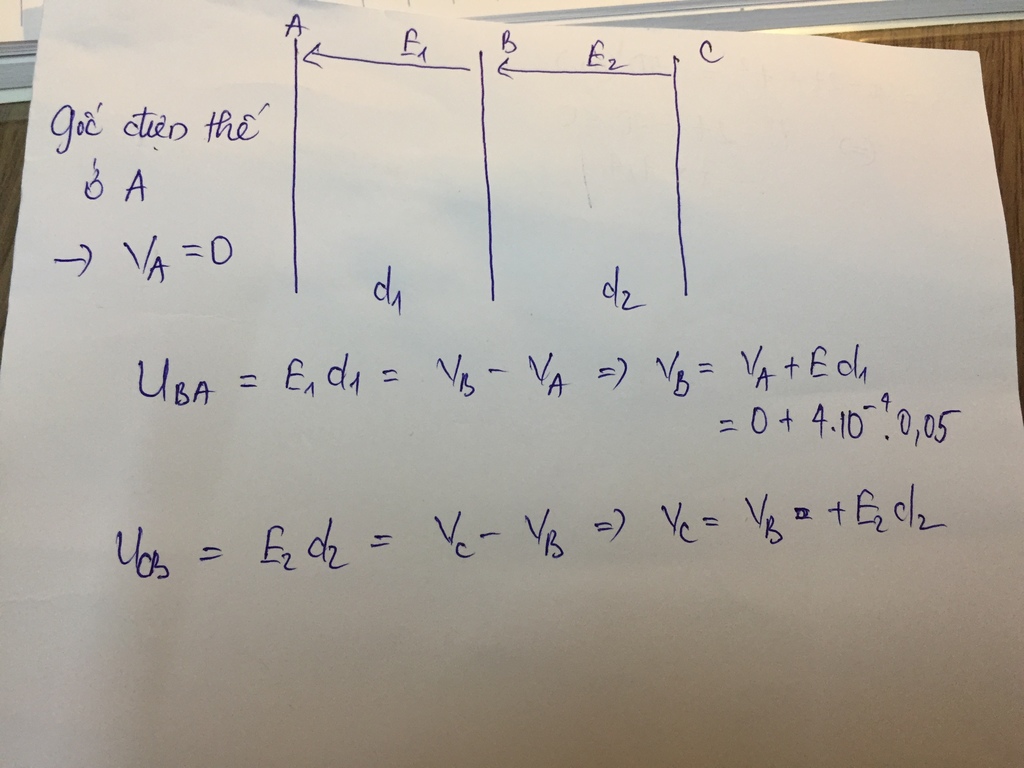 A E₁ B E₂ C
gốc điện thế
ở A
→ V_A = 0
d₁ d₂
U_BA = E₁d₁ = V_B - V_A => V_B = V_A + Ed₁
= 0 + 4.10⁻⁴.0,05
U_CB = E₂d₂ = V_C - V_B => V_C = V_B + E₂d₂